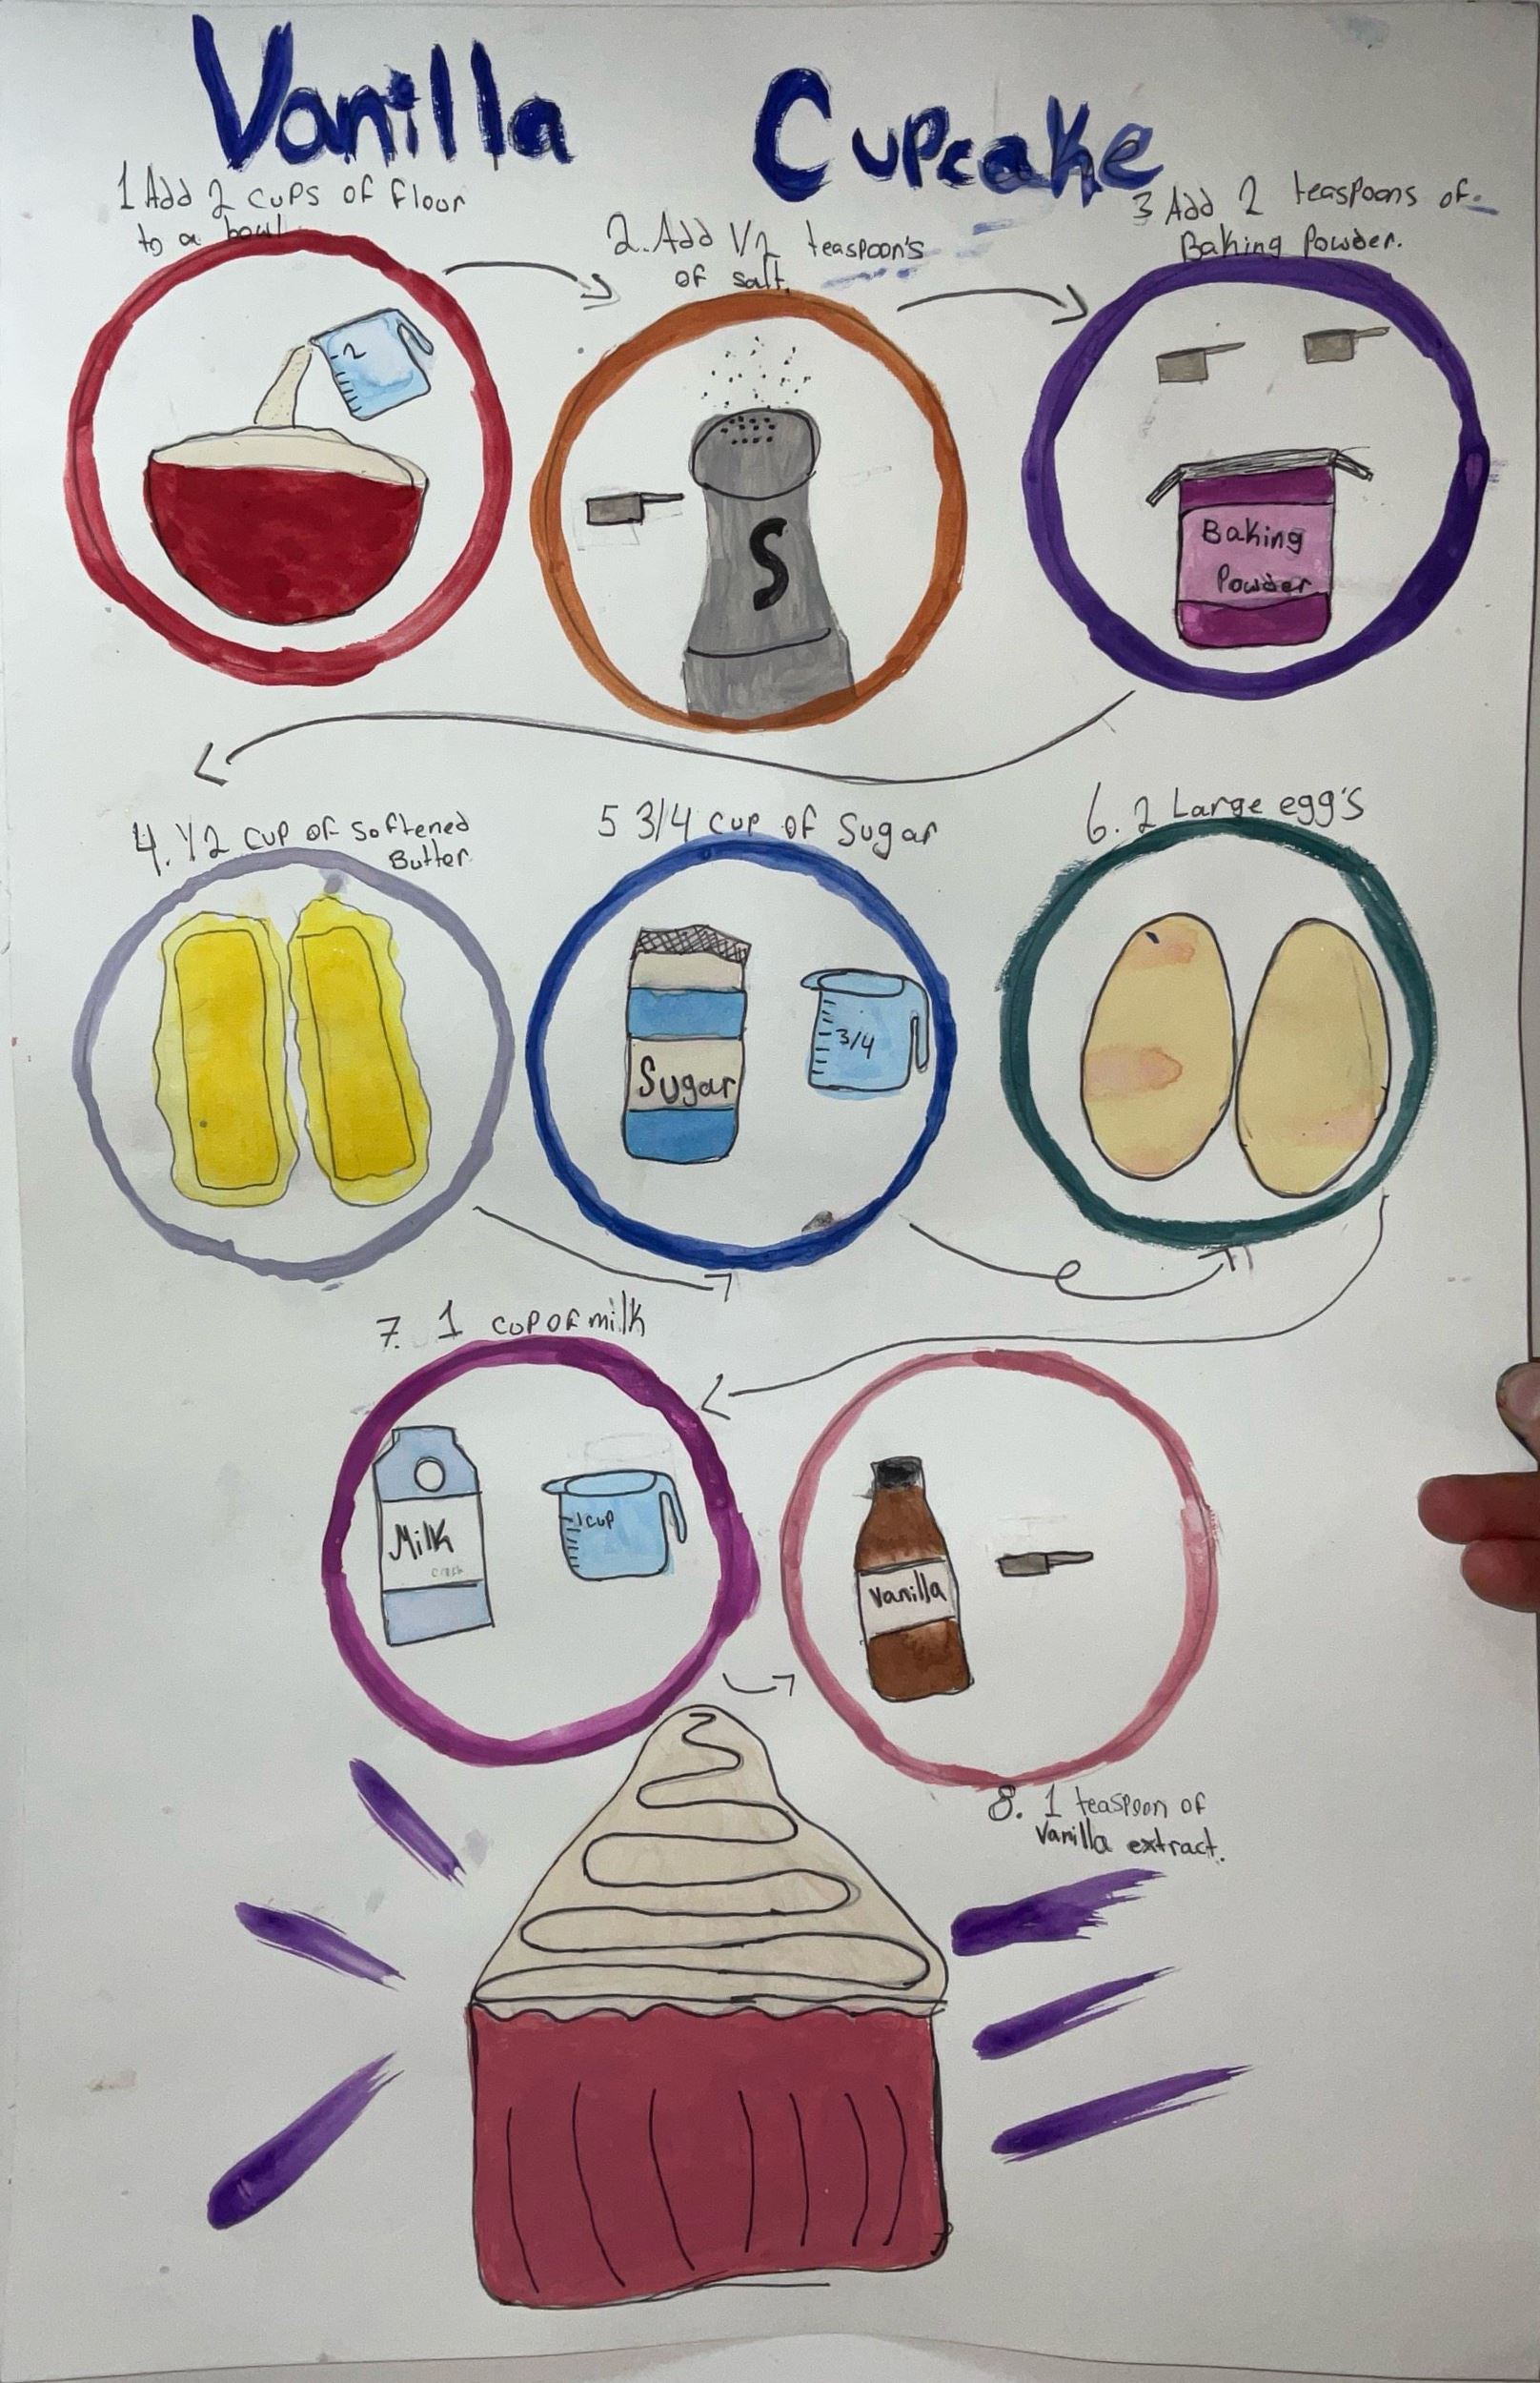 Vanilla Cupcake
1 Add 2 cups of flour
to a bowl
2. Add 1/2 teaspoon's
of salt.
3 Add 2 teaspoons of
Baking Powder.
2
S
Baking
Powder
4. 1/2 cup of softened
Butter
5 3/4 cup of Sugar
6. 2 Large egg's
Sugar
3/4
7. 1 cup of milk
Milk
1 cup
Vanilla
8. 1 teaspoon of
Vanilla extract.